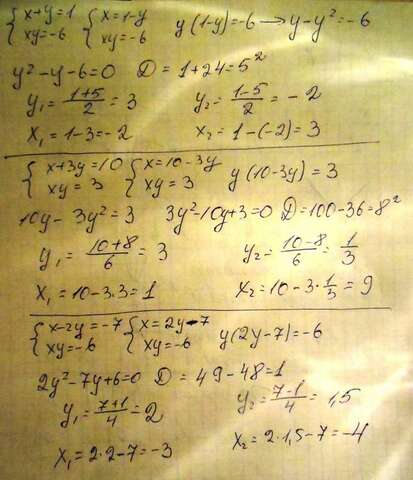 {x+y=1 {x=1-y y(1-y)=-6 → y-y²=-6
{xy=-6 {xy=-6
y²-y-6=0 D=1+24=5²
y₁=(1+5)/2=3 y₂=(1-5)/2=-2
x₁=1-3=-2 x₂=1-(-2)=3
{x+3y=10 {x=10-3y y(10-3y)=3
{xy=3 {xy=3
10y-3y²=3 3y²-10y+3=0 D=100-36=8²
y₁=(10+8)/6=3 y₂=(10-8)/6=1/3
x₁=10-3·3=1 x₂=10-3·1/3=9
{x-2y=-7 {x=2y-7 y(2y-7)=-6
{xy=-6 {xy=-6
2y²-7y+6=0 D=49-48=1
y₁=(7+1)/4=2 y₂=(7-1)/4=1,5
x₁=2·2-7=-3 x₂=2·1,5-7=-4